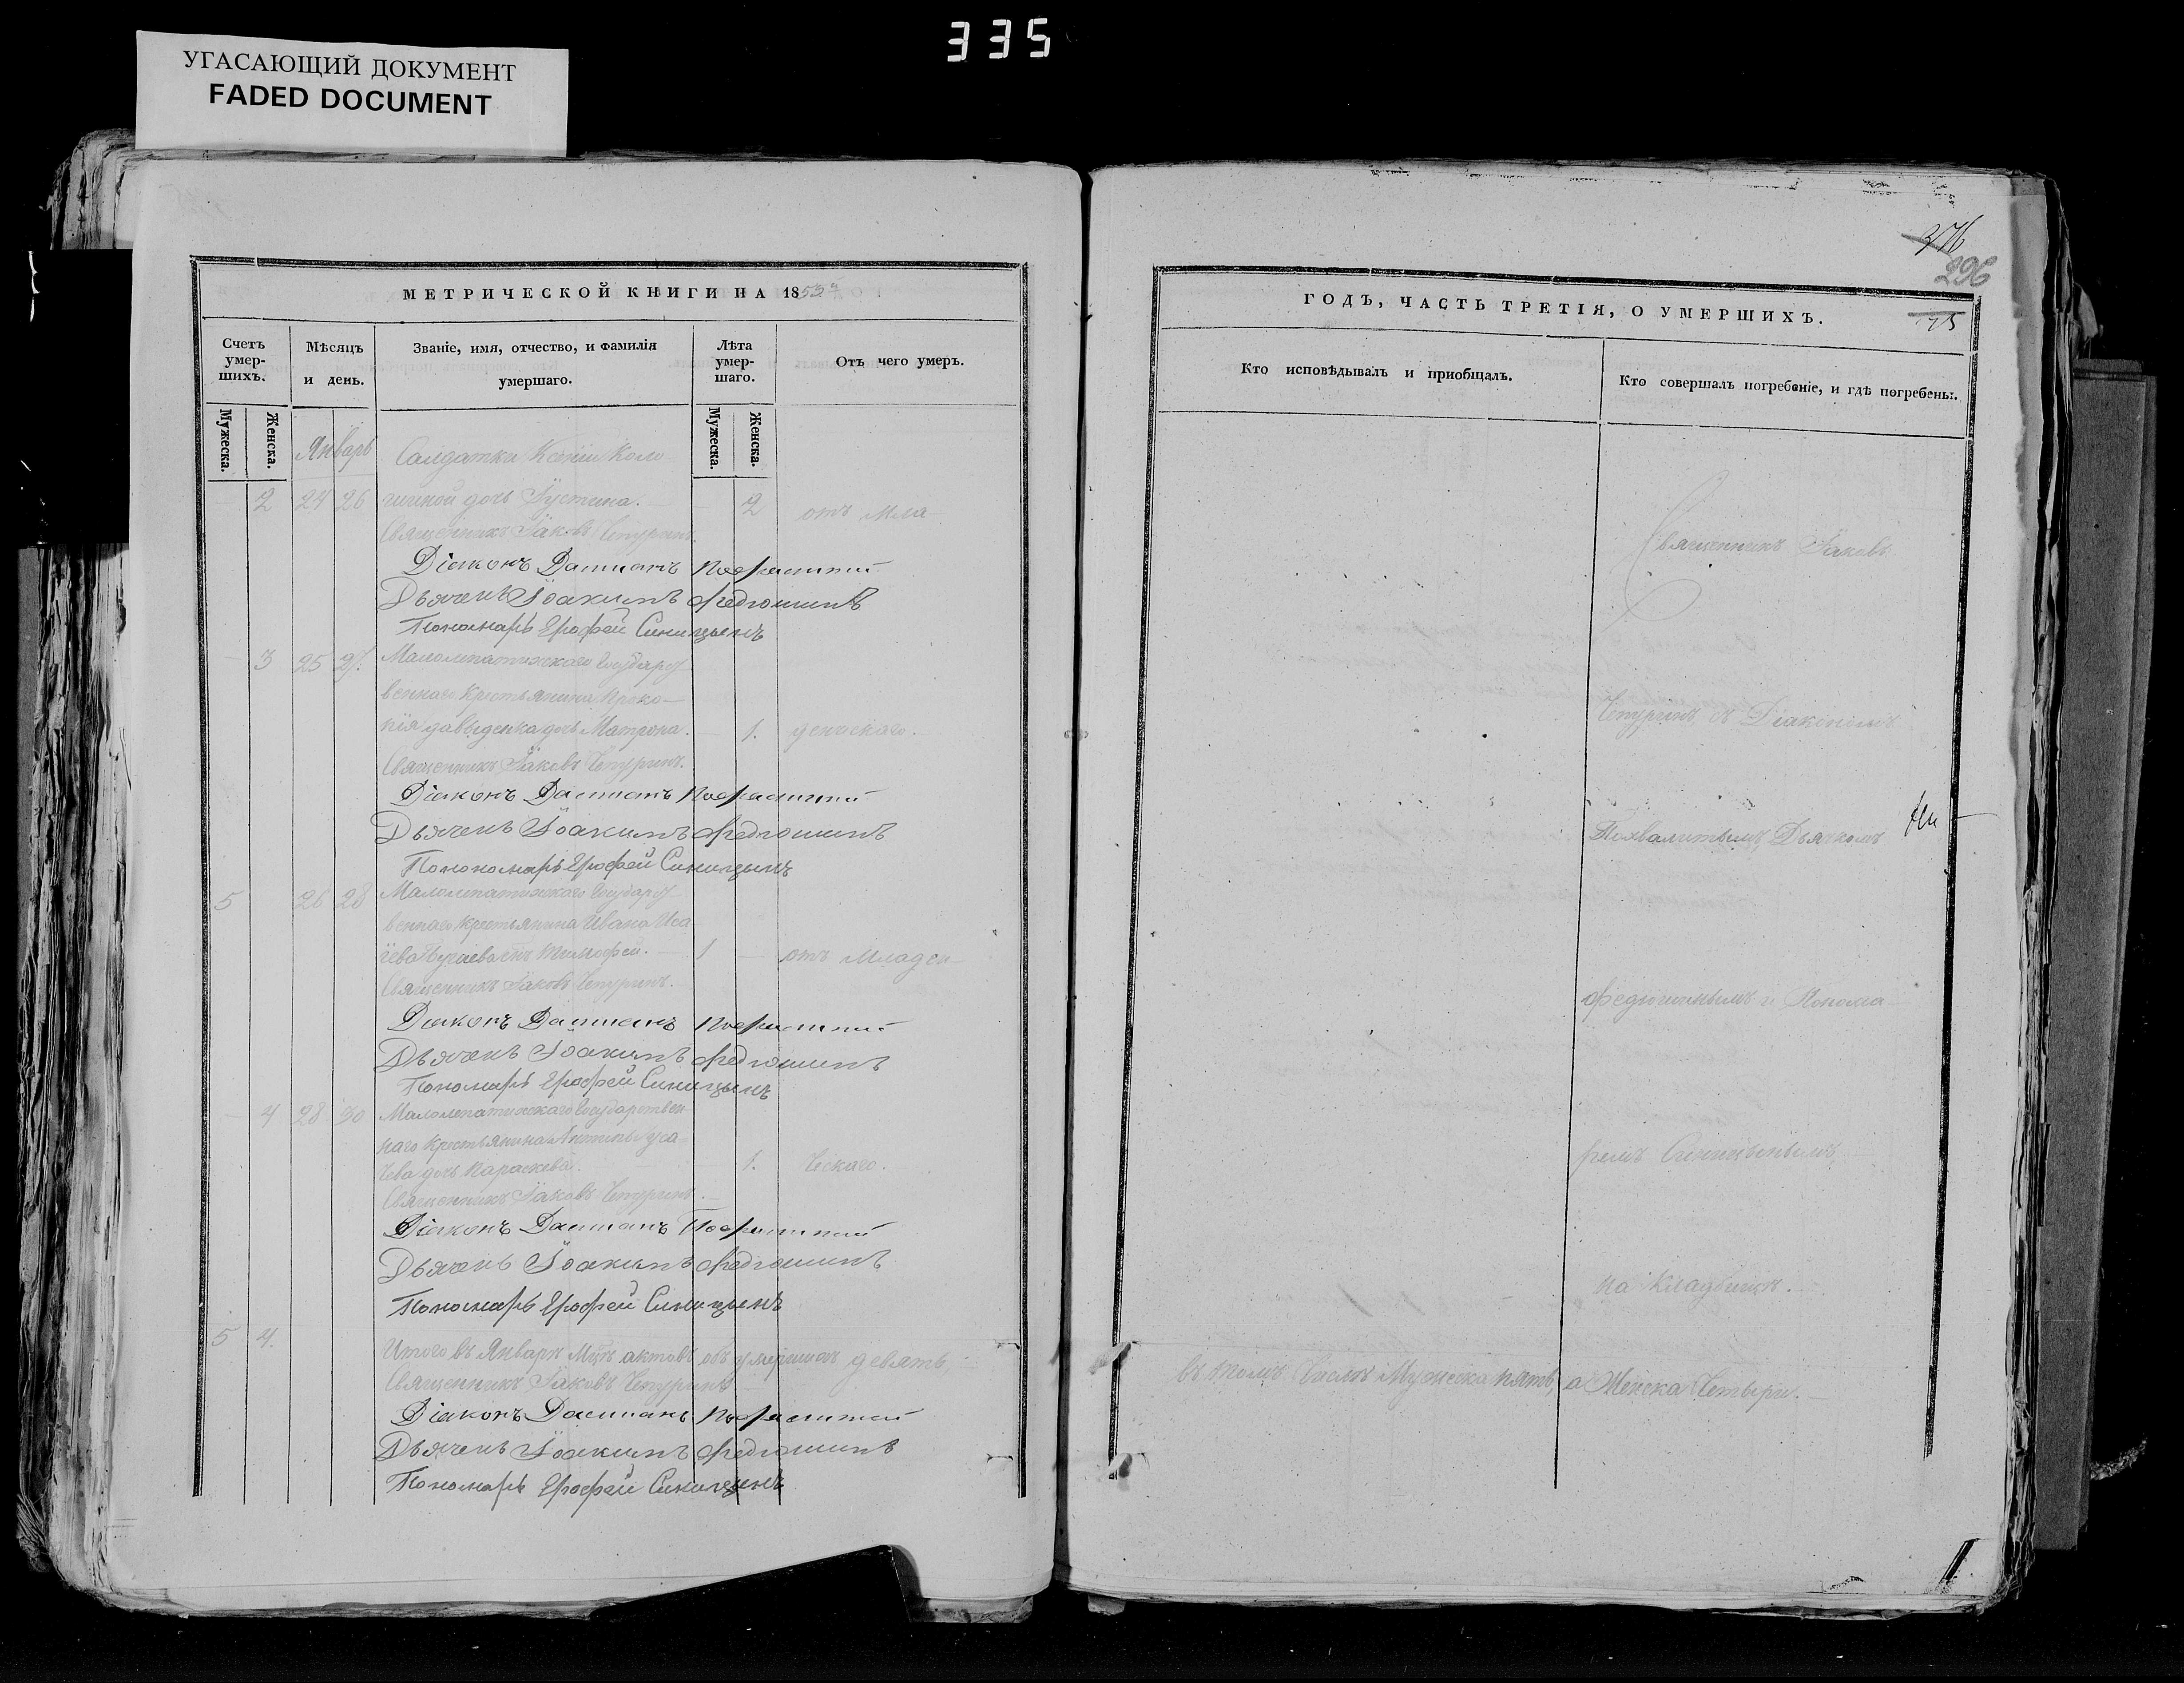 335
УГАСАЮЩИЙ ДОКУМЕНТ
FADED DOCUMENT
МЕТРИЧЕСКОЙ КНИГИ НА 1853й
Счетъ умер-шихъ.
Мѣсяцъ и день.
Званіе, имя, отчество, и фамилія умершаго.
Лѣта умер-шаго.
Отъ чего умеръ.
Мужеска.
Женска.
Мужеска.
Женска.
Январь
Салдатки Ксеніи Коло
2 24 26 дочь Іустина. 2 отъ Мла
Священникъ Іаковъ Чепуринъ.
Діаконъ Дамианъ
Дьячекъ Іоакимъ Федюшинъ
Пономарь Ерофей Синицынъ
3 25 27. Малолепатижскаго Государст
веннаго Крестьянина Проко
пія Давыденка дочь Матрона. 1. денческаго.
Священникъ Іаковъ Чепуринъ.
Діаконъ Дамианъ
Дьячекъ Іоакимъ Федюшинъ
Понономарь Ерофей Синицынъ
5 26 28 Малолепатижскаго Государст
веннаго Крестьянина Ивана Иса
сынъ Тимофей. 1 отъ Младен
Священникъ Іаковъ Чепуринъ.
Діаконъ Дамианъ
Дьячекъ Іоакимъ Федюшинъ
Пономарь Ерофей Синицынъ
4 28 30 Малолепатижскаго Государствен
наго Крестьянина Гуса
чева дочь Параскева. 1. ческаго.
Священникъ Іаковъ Чепуринъ.
Діаконъ Дамианъ
Дьячекъ Іоакимъ Федюшинъ
Пономарь Ерофей Синицынъ
5 4. Итого въ Январѣ Мцѣ актовъ объ умершихъ девять,
Священникъ Іаковъ Чепуринъ
Діаконъ Дамианъ
Дьячекъ Іоакимъ Федюшинъ
Пономарь Ерофей Синицынъ
376
296
ГОДЪ, ЧАСТЬ ТРЕТІЯ, О УМЕРШИХЪ.
Кто исповѣдывалъ и пріобщалъ.
Кто совершалъ погребеніе, и гдѣ погребены.
Священникъ Іаковъ
Чепуринъ съ Діакономъ
Похвалитымъ, Дьячкомъ
Федюшинымъ и Понома
ремъ Синицынымъ
на Кладбищѣ.
въ томъ числѣ Мужеска пять, а Женска Четыри.